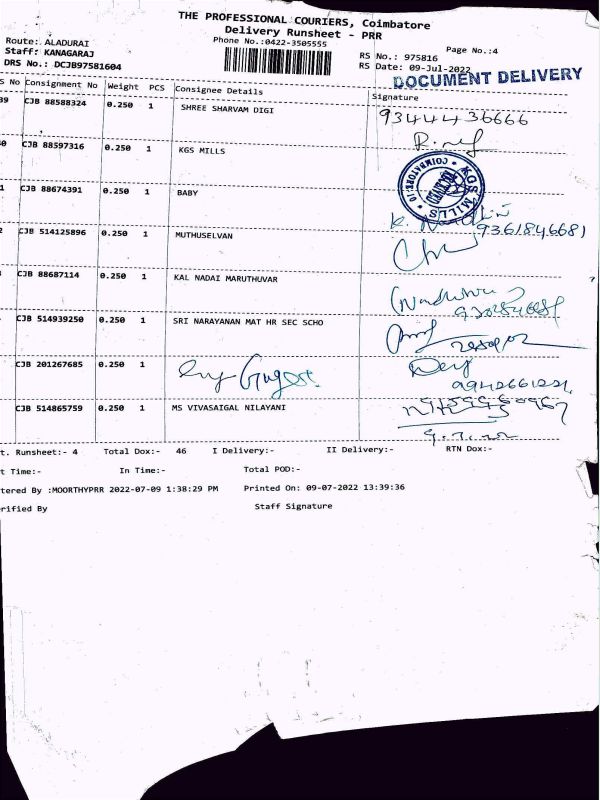 THE PROFESSIONAL COURIERS, Coimbatore
Delivery Runsheet - PRR
Phone No.:0422-3505555
Route: ALADURAI
Staff: KANAGARAJ
DRS No.: DCJB97581604
RS No.: 975816 Page No.:4
RS Date: 09-Jul-2022
DOCUMENT DELIVERY
S No Consignment No Weight PCS Consignee Details Signature
39 CJB 88588324 0.250 1 SHREE SHARVAM DIGI 9344436666
0 CJB 88597316 0.250 1 KGS MILLS
KGS MILLS
COIMBATORE
1 CJB 88674391 0.250 1 BABY
2 CJB 514125896 0.250 1 MUTHUSELVAN 9361846681
CJB 88687114 0.250 1 KAL NADAI MARUTHUVAR
CJB 514939250 0.250 1 SRI NARAYANAN MAT HR SEC SCHO
CJB 201267685 0.250 1
CJB 514865759 0.250 1 MS VIVASAIGAL NILAYANI
9.7.22
t. Runsheet:- 4 Total Dox:- 46 I Delivery:- II Delivery:- RTN Dox:-
t Time:- In Time:- Total POD:-
tered By :MOORTHYPRR 2022-07-09 1:38:29 PM Printed On: 09-07-2022 13:39:36
rified By Staff Signature